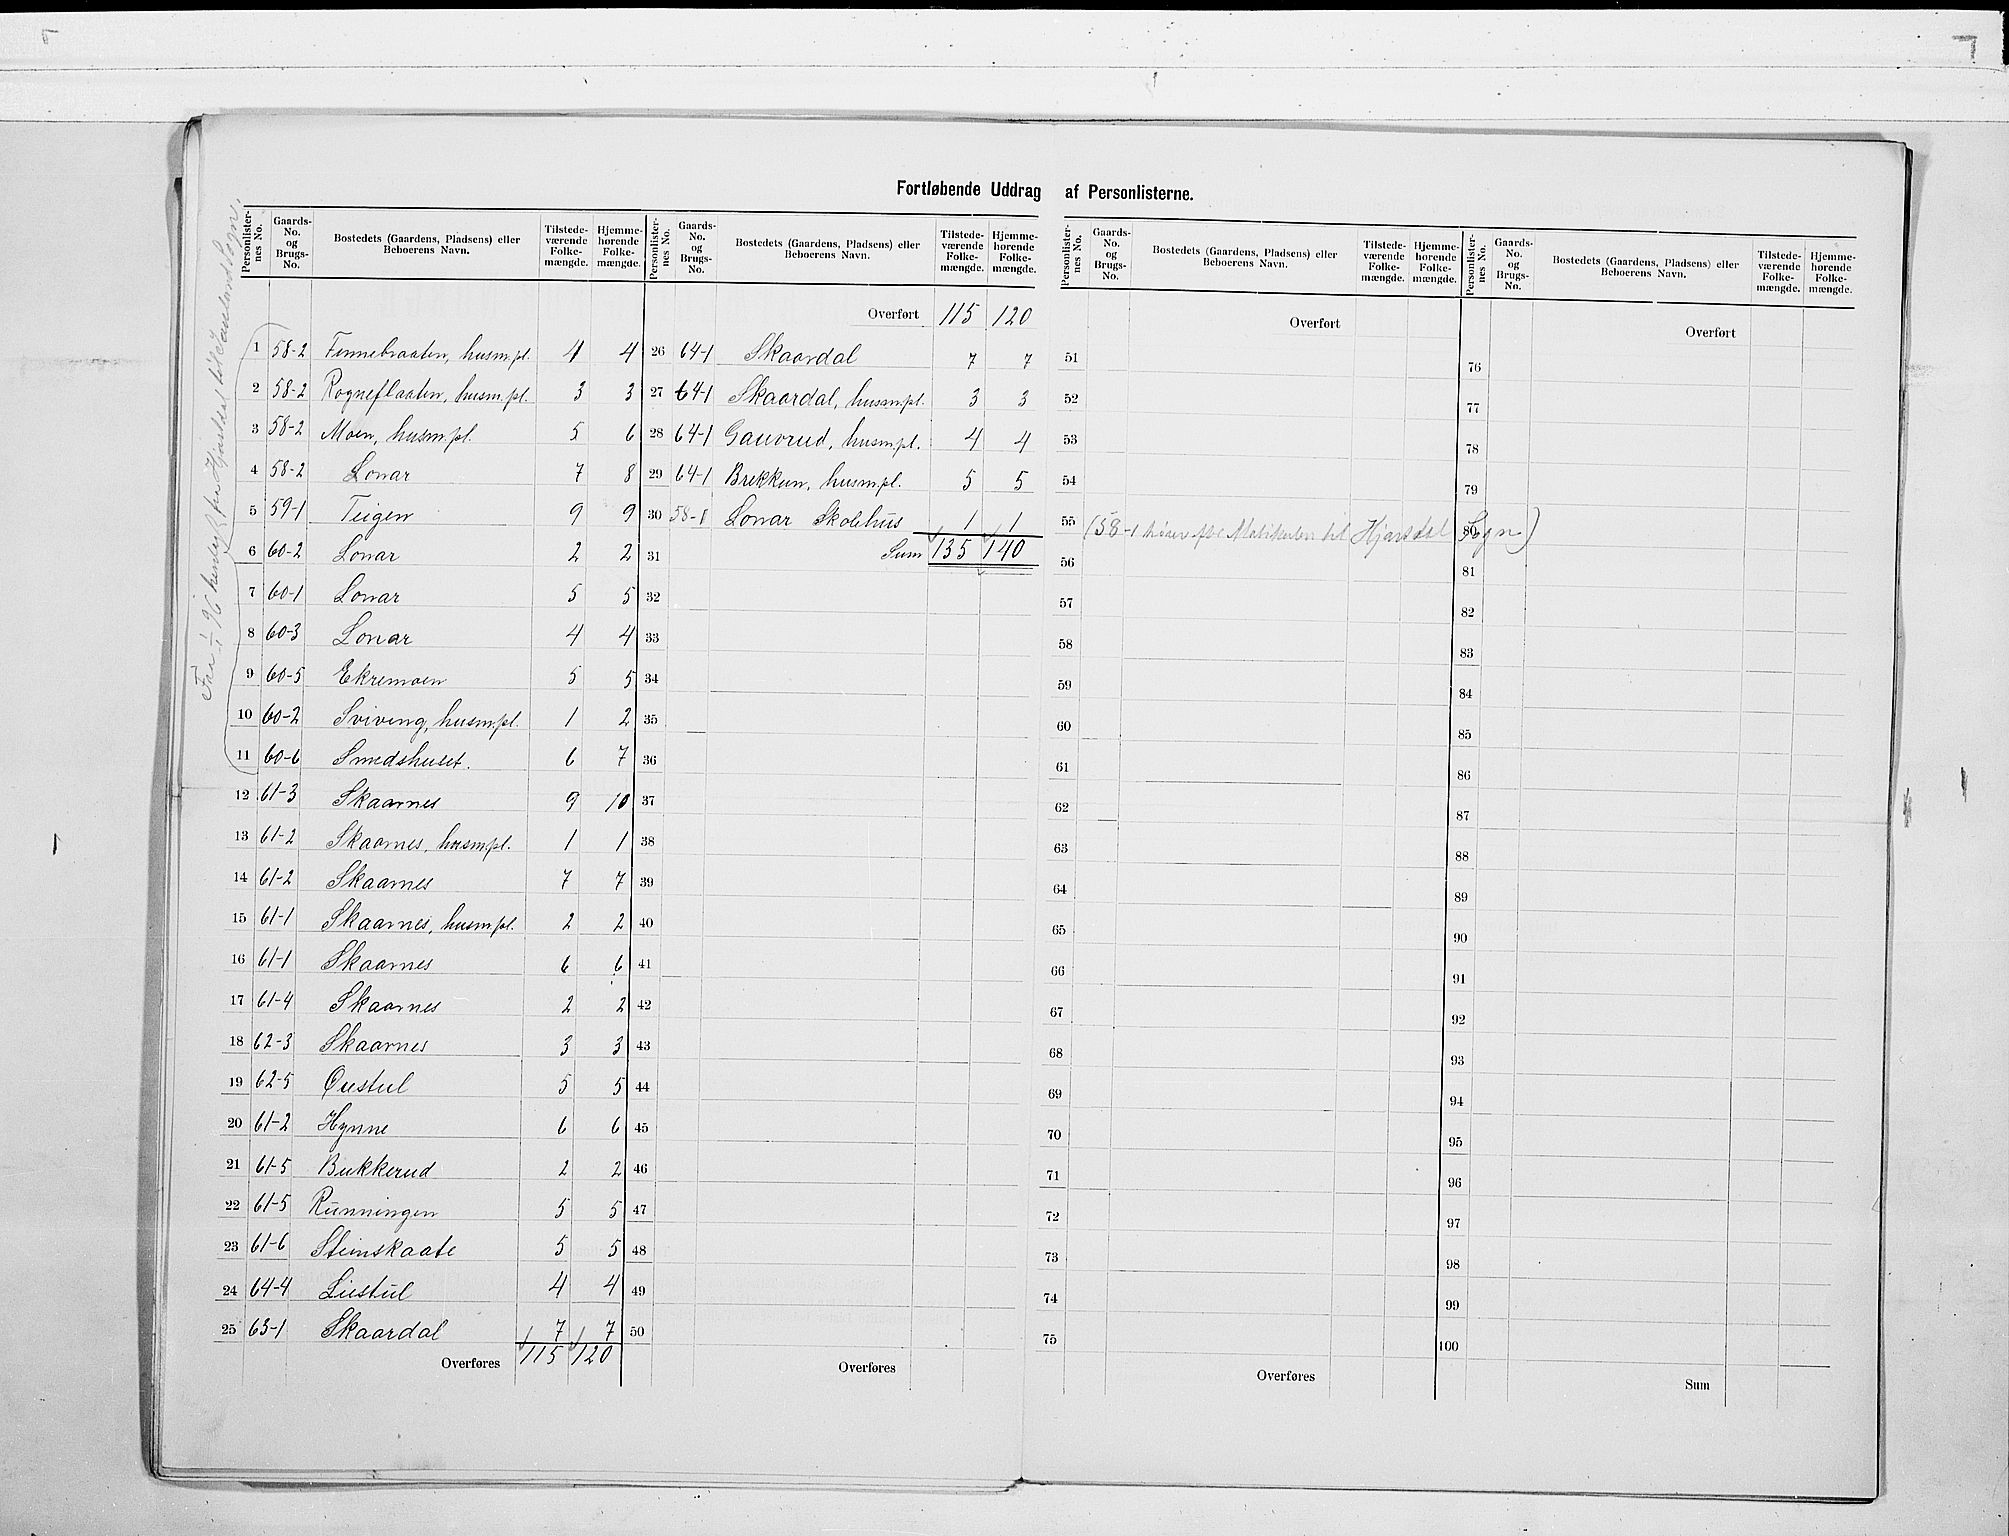 Fortløbende Uddrag af Personlisterne.
Personlister-nes No. | Gaards-No. og Brugs-No. | Bostedets (Gaardens, Pladsens) eller Beboerens Navn. | Tilstede-værende Folke-mængde. | Hjemme-hørende Folke-mængde.
1 58-2 Finnebraaten, husm.pl. 4 4
2 58-2 Rogneflaaten, husm.pl. 3 3
3 58-2 Moen, husm.pl. 5 6
4 58-2 Lonar 7 8
5 59-1 Teigen 9 9
6 60-2 Lonar 2 2
7 60-1 Lonar 5 5
8 60-3 Lonar 4 4
9 60-5 Ekremoen 5 5
10 60-2 Sviving, husm.pl. 1 2
11 60-6 Smedshulet. 6 7
12 61-3 Skaarnes 9 10
13 61-2 Skaarnes, husm.pl. 1 1
14 61-2 Skaarnes 7 7
15 61-1 Skaarnes, husm.pl. 2 2
16 61-1 Skaarnes 6 6
17 61-4 Skaarnes 2 2
18 62-3 Skaarnes 3 3
19 62-5 Øustul 5 5
20 61-2 Hynne 6 6
21 61-5 Bukkerud 2 2
22 61-5 Runningen 5 5
23 61-6 Steinskaate 5 5
24 64-4 Liestul 4 4
25 63-1 Skaardal 7 7
Overføres 115 120
Fra 1/1 96 henlagt fra Hjartdal til Tauslands Sogn.
Personlister-nes No. | Gaards-No. og Brugs-No. | Bostedets (Gaardens, Pladsens) eller Beboerens Navn. | Tilstede-værende Folke-mængde. | Hjemme-hørende Folke-mængde.
Overført 115 120
26 64-1 Skaardal 7 7
27 64-1 Skaardal, husm.pl. 3 3
28 64-1 Gauvrud, husm.pl. 4 4
29 64-1 Brekkun, husm.pl. 5 5
30 58-1 Lonar Skolehus 1 1
31 Sum 135 140
32
33
34
35
36
37
38
39
40
41
42
43
44
45
46
47
48
49
50
Overføres
Personlister-nes No. | Gaards-No. og Brugs-No. | Bostedets (Gaardens, Pladsens) eller Beboerens Navn. | Tilstede-værende Folke-mængde. | Hjemme-hørende Folke-mængde.
Overført
51
52
53
54
55 (58-1 hører efter Matrikulen til Hjartdal Sogn)
56
57
58
59
60
61
62
63
64
65
66
67
68
69
70
71
72
73
74
75
Overføres
Personlister-nes No. | Gaards-No. og Brugs-No. | Bostedets (Gaardens, Pladsens) eller Beboerens Navn. | Tilstede-værende Folke-mængde. | Hjemme-hørende Folke-mængde.
Overført
76
77
78
79
80
81
82
83
84
85
86
87
88
89
90
91
92
93
94
95
96
97
98
99
100
Sum